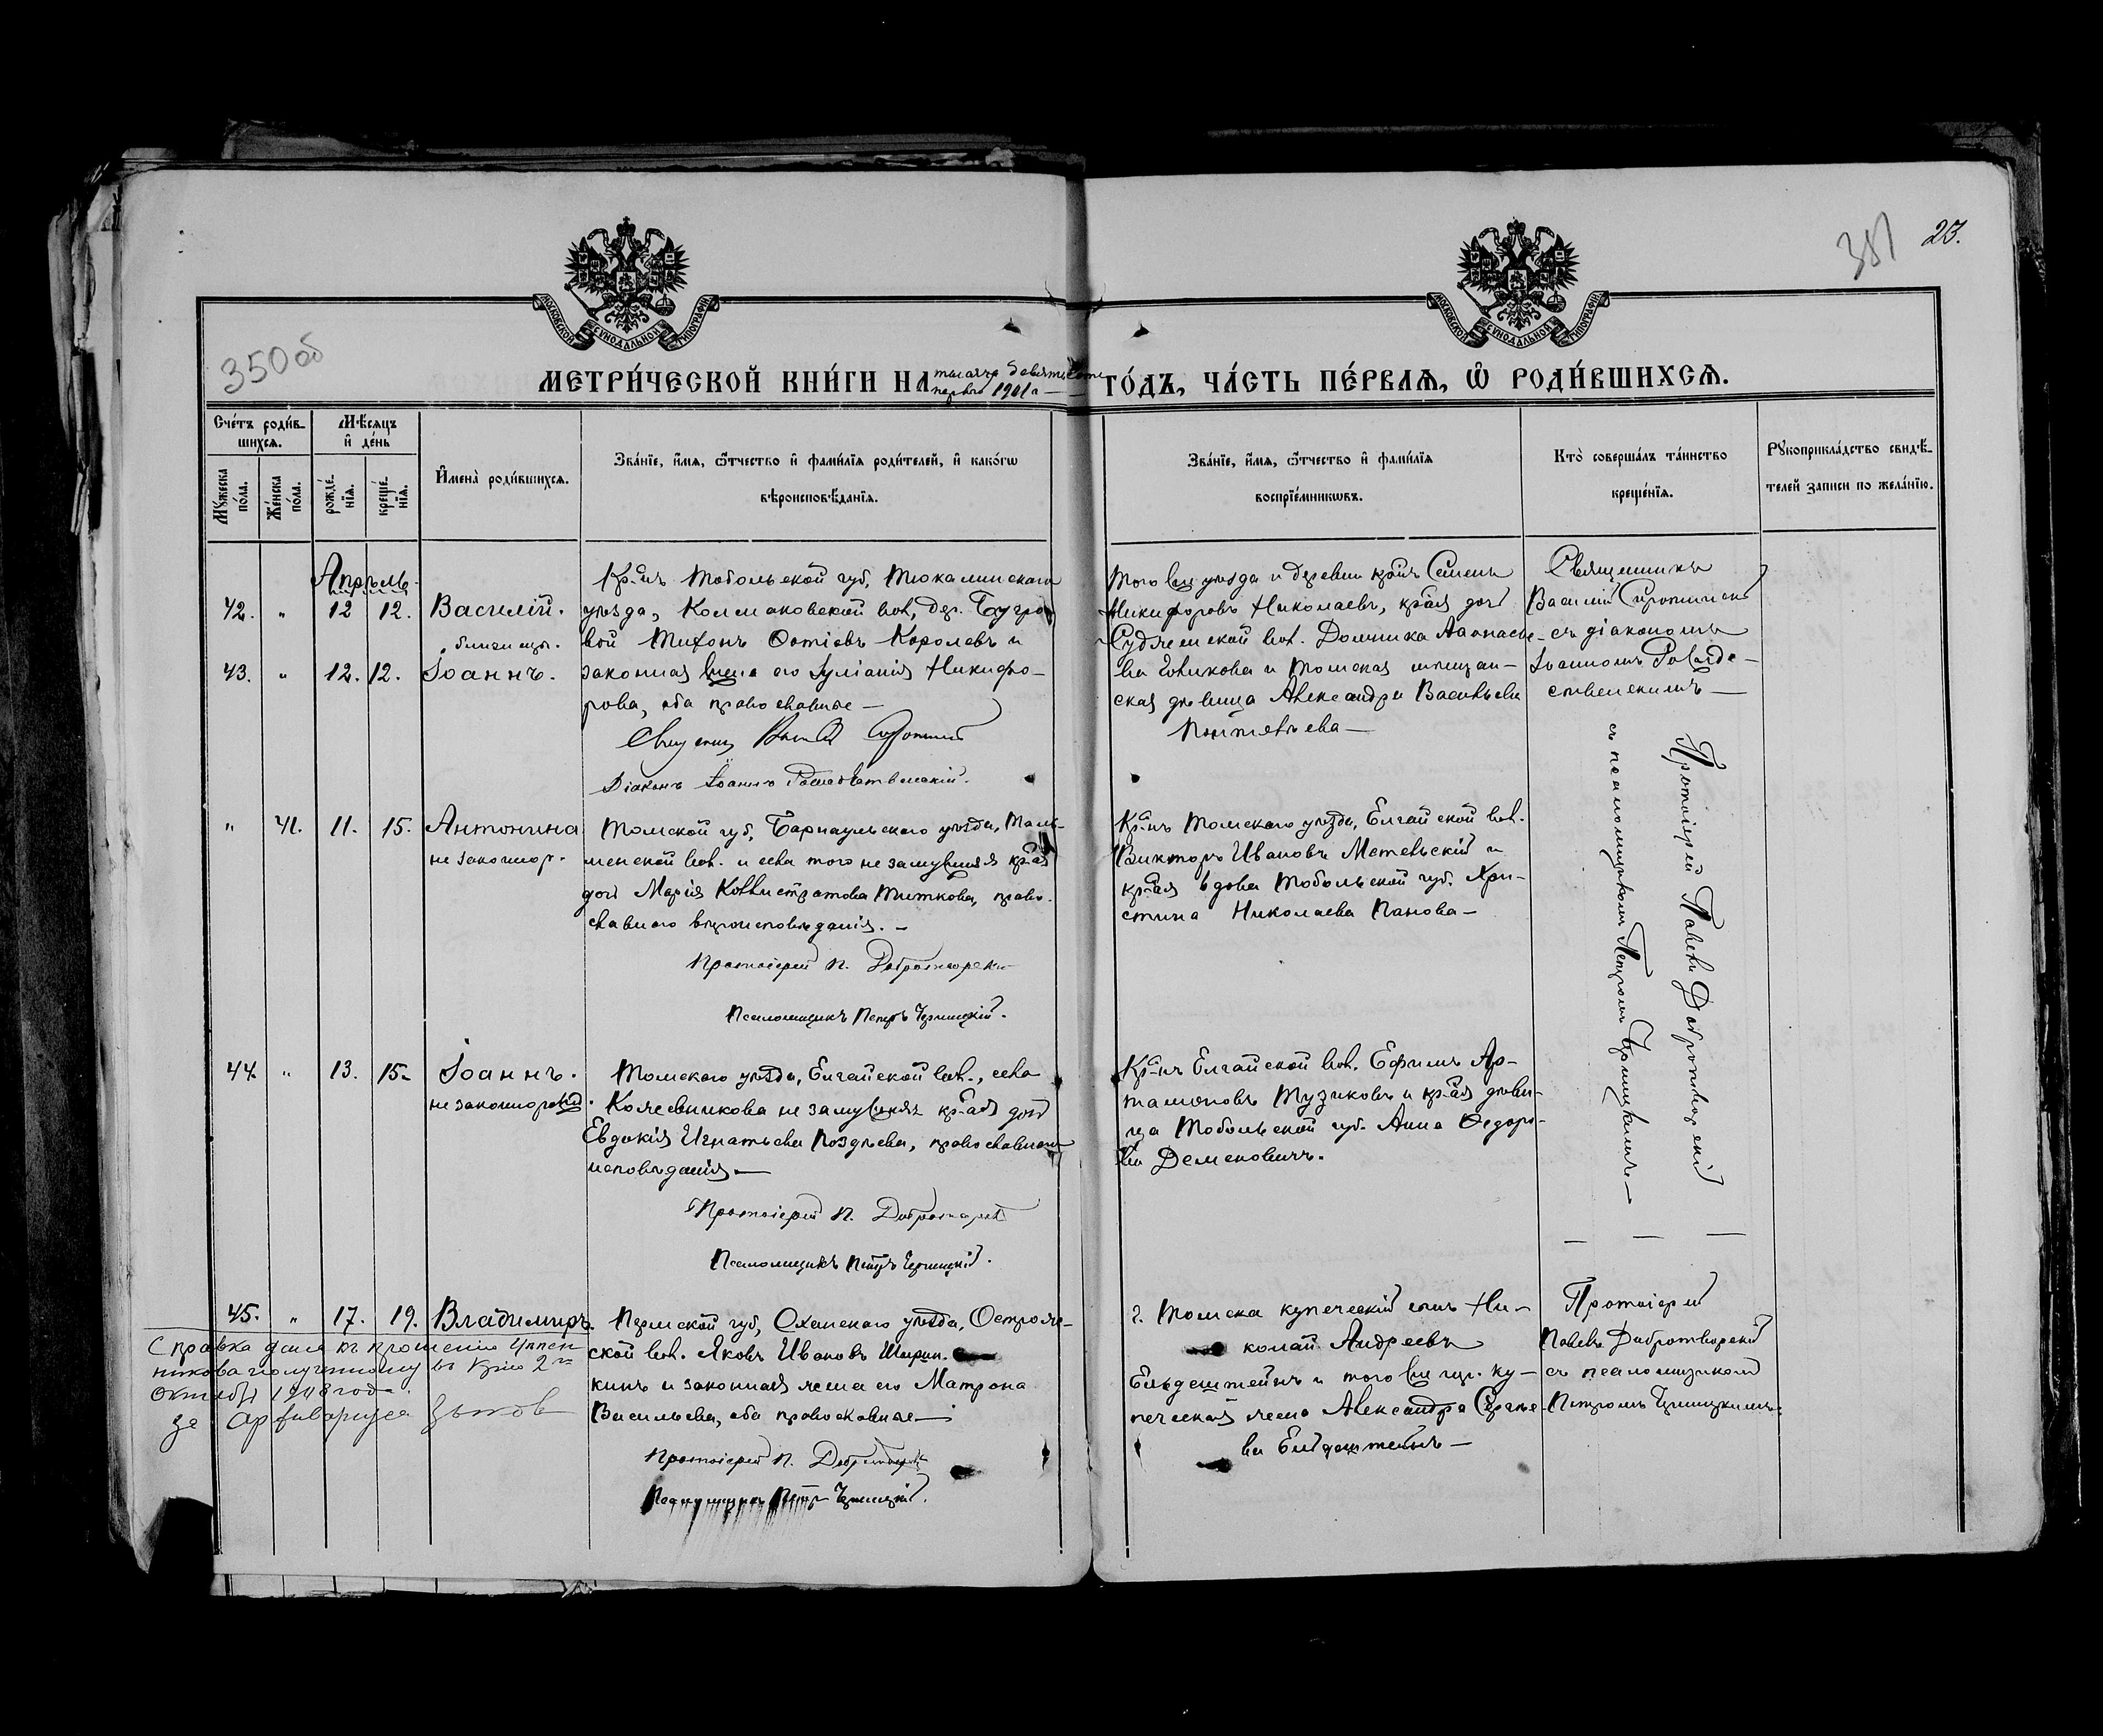 МОСКОВСКОЙ СУНОДАЛЬНОЙ ТИПОГРАФІИ
МОСКОВСКОЙ СУНОДАЛЬНОЙ ТИПОГРАФІИ
350 об
351 23.
МЕТРИ́ЧЕСКОЙ КНИ́ГИ НА тысяча девятьсотъ первый 1901 й ГО́ДЪ, ЧА́СТЬ ПЕ́РВАѦ, Ѡ҆ РОДИ́ВШИХСѦ.
Сче́тъ роди́в-
шихсѧ.
Мꙋ́жеска по́ла.
Же́нска по́ла.
Мѣ́сѧцъ
и҆ де́нь
рожде́-
нїѧ.
креще́-
нїѧ.
И҆мена̀ роди́вшихсѧ.
Зва́нїе, и҆́мѧ, ѻ҆́тчество и҆ фами́лїѧ роди́телей, и҆ како́гѡ
вѣроисповѣ́данїѧ.
Зва́нїе, и҆́мѧ, ѻ҆́тчество и҆ фами́лїѧ
воспрїе́мникѡвъ.
Кто̀ соверша́лъ та́инство
креще́нїѧ.
Рꙋкоприкла́дство свидѣ́-
телей записи по жела́нїю.
Апрѣль
42. " 12 12. Василій.
близнецы.
43. " 12. 12. Іоаннъ.
Кр-нъ Тобольской губ, Тюкалинскаго
уѣзда, Колмаковской вол, дер. Бугро-
вой Тихонъ Фотіевъ Королевъ и
законная жена его Іуліанія Никифо-
рова, оба православные —
Діаконъ Іоаннъ Рождественскій.
Того же уѣзда и деревни кр-нъ Семенъ
Никифоровъ Николаевъ, кр-ая доч
Судженской вол. Домника Афанасье-
ва Новикова и Томская мѣщан-
ская дѣвица Александра Васильева
Священникъ
Василій Сиротинскій
съ діакономъ
Іоанномъ Рожде-
ственскимъ —
" 41. 11. 15. Антонина
незаконнор.
Томской губ, Барнаульскаго уѣзда, Таль-
менской вол. и села того незамужняя кр-ая
доч Марія Каллистратова Титкова, право-
славнаго вѣроисповѣданія. —
Протоіерей П. Добротворскій
Псаломщикъ Петръ Черницкій.
Кр-нъ Томскаго уѣзда, Елгайской вол.
Викторъ Ивановъ Метельскій и
кр-ая вдова Тобольской губ. Хри-
стина Николаева Панова —
Протоіерей Павелъ Добротворскій
съ псаломщикомъ Петромъ Черницкимъ —
44. " 13. 15. Іоаннъ.
незаконнорожд.
Томскаго уѣзда, Елгайской вол., села
Колесникова незамужняя кр-ая доч
Евдокія Игнатьева Поздѣева, православнаго
исповѣданія —
Протоіерей П. Добротворскій
Псаломщикъ Петръ Черницкій.
Кр-нъ Елгайской вол. Ефимъ Ар-
тамоновъ Тузиковъ и кр-ая дѣви-
ца Тобольской губ. Анна Ѳедоро-
ва Деменовичъ.
45. " 17. 19. Владимиръ.
Пермской губ, Оханскаго уѣзда, Острож-
ской вол. Яковъ Ивановъ Ширин-
кинъ и законная жена его Матрона
Васильева, оба православные —
Протоіерей П. Добротворскій
Псаломщикъ Петръ Черницкій.
г. Томска купеческій сынъ Ни-
колай Андреевъ
Ельдештейнъ и того же гор. ку-
печеская жена Александра Сергѣе-
ва Ельдештейнъ —
Протоіерей
Павелъ Добротворскій
съ псаломщикомъ
Петромъ Черницкимъ.
Справка дана по прошенію
полученному въ 2го
Октября 1908 года.
за Архиваріуса Зыков